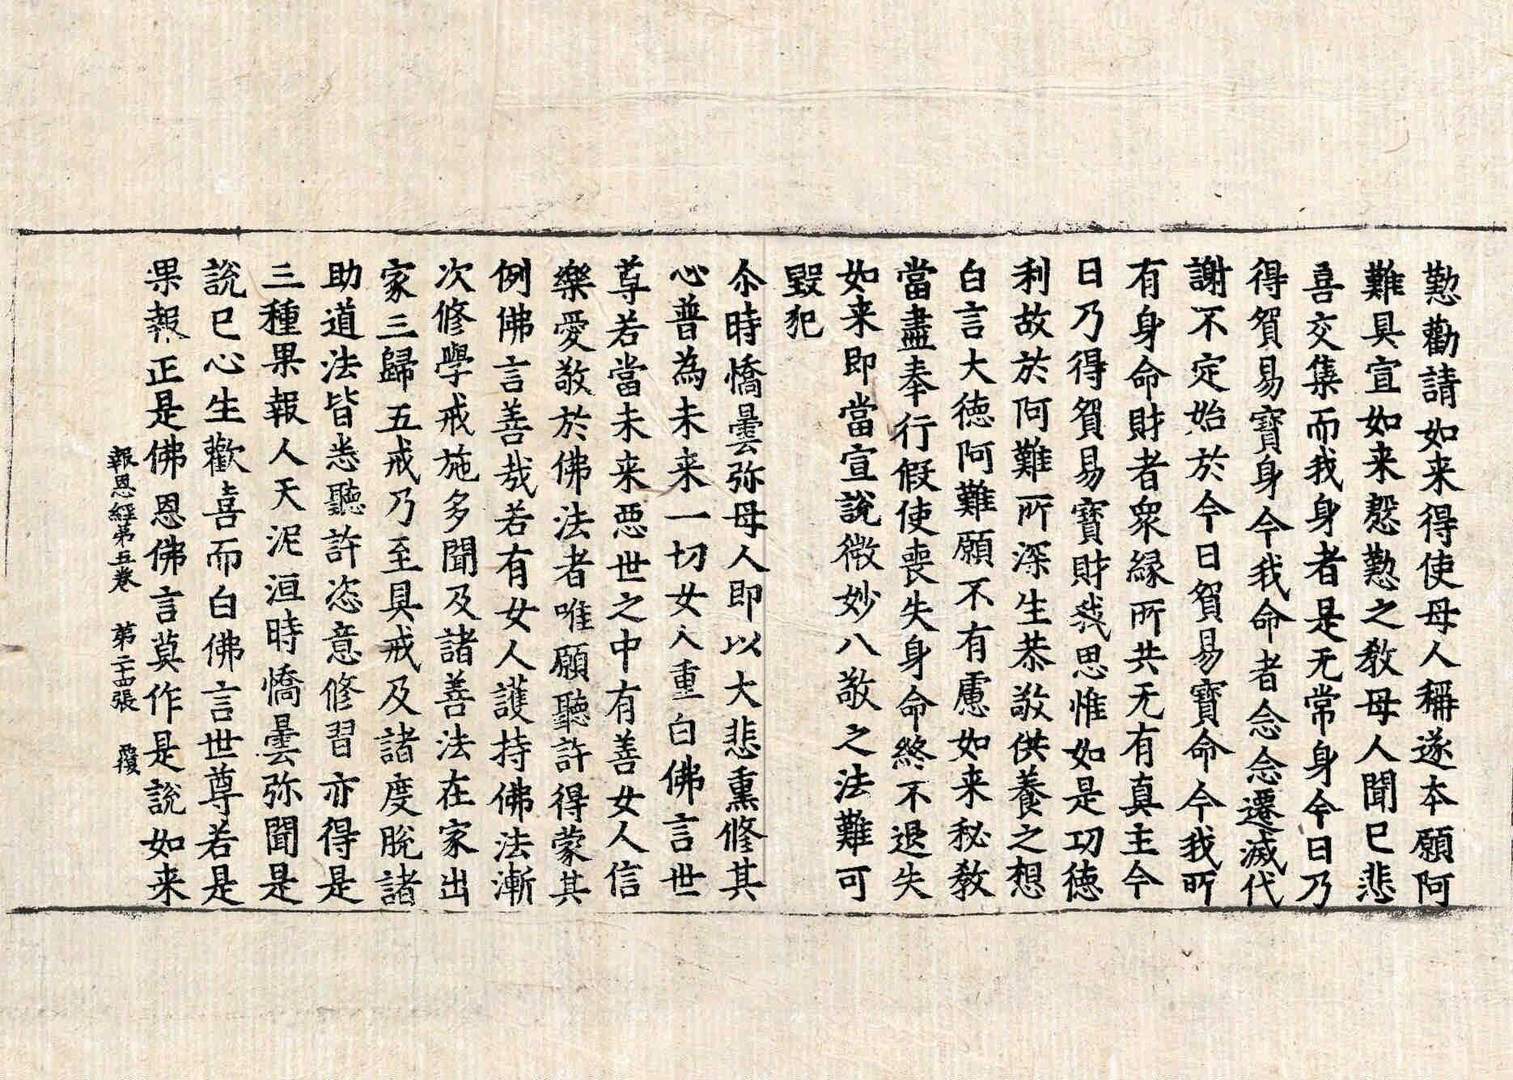 懃勸請如来得使母人稱遂本願阿
難具宣如来慇懃之教母人聞已悲
喜交集而我身者是无常身今日乃
得貿易寶身今我命者念念遷滅代
謝不定始於今日貿易寶命今我所
有身命財者衆縁所共无有真主今
日乃得貿易寶財我思惟如是功徳
利故於阿難所深生恭敬供養之想
白言大徳阿難願不有慮如来秘教
當盡奉行假使喪失身命終不退失
如来即當宣說微妙八敬之法難可
毀犯
尒時憍曇弥母人即以大悲熏修其
心普為未来一切女人重白佛言世
尊若當未来惡世之中有善女人信
樂愛敬於佛法者唯願聽許得蒙其
例佛言善哉若有女人護持佛法漸
次修學戒施多聞及諸善法在家出
家三歸五戒乃至具戒及諸度脫諸
助道法皆悉聽許恣意修習亦得是
三種果報人天泥洹時憍曇弥聞是
說已心生歡喜而白佛言世尊若是
果報正是佛恩佛言莫作是說如来
報恩經第五卷 第二十四張 覆